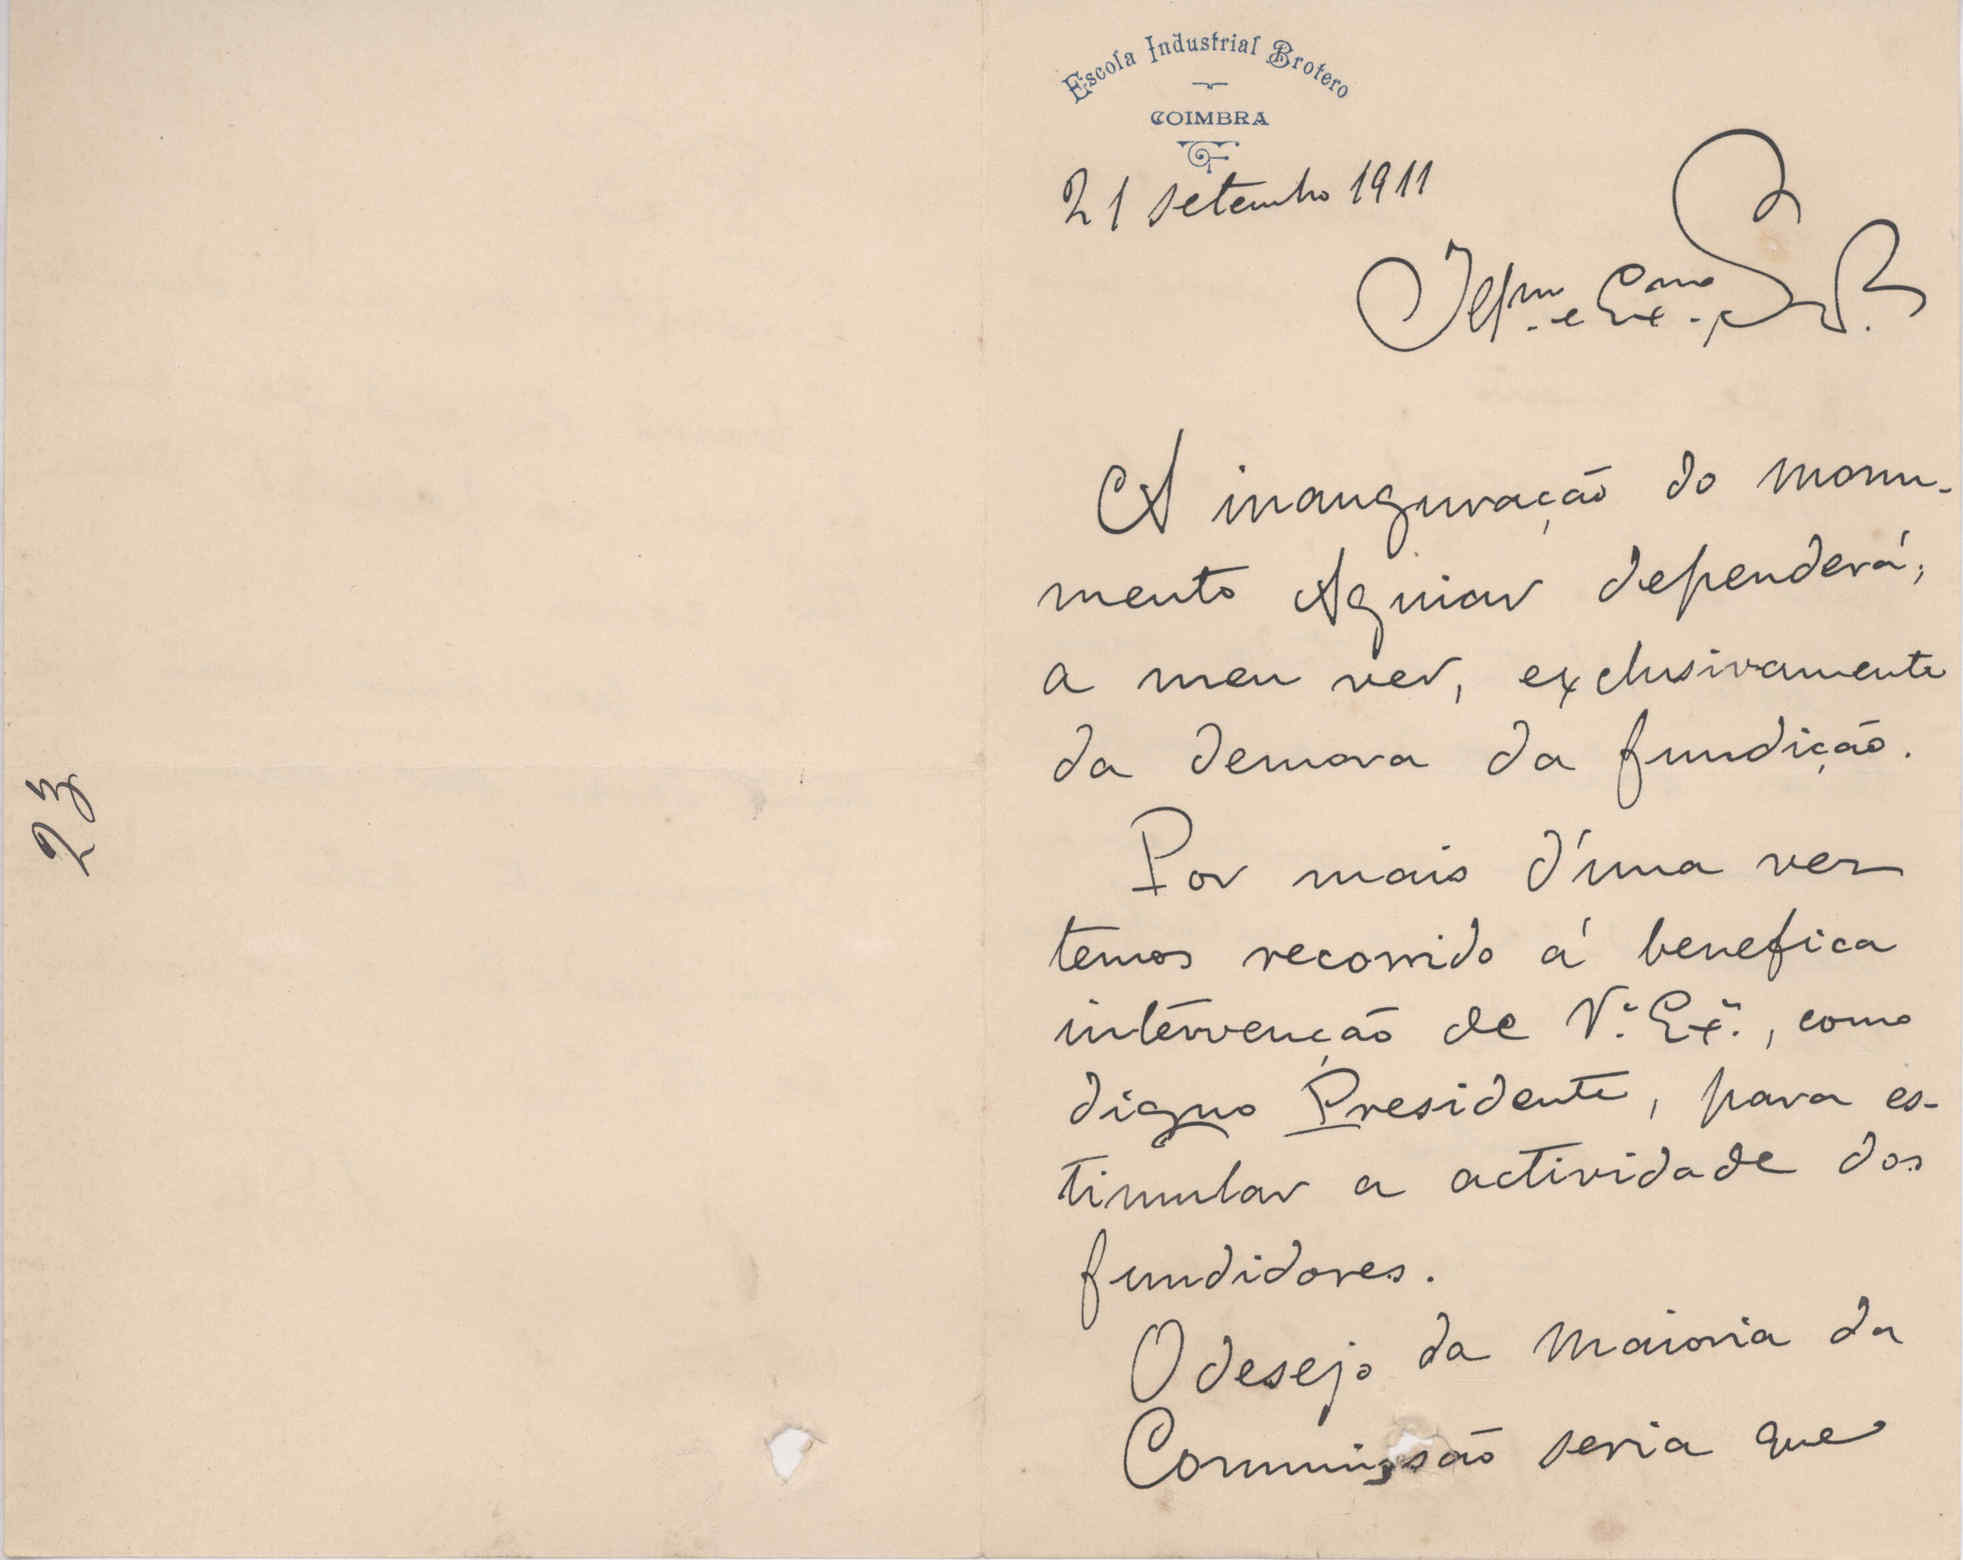 Escola Industrial Brotero
COIMBRA
21 setembro 1911
Illmo. e Exmo. Snr.
A inauguração do monu-
mento Aguiar dependerá,
a meu ver, exclusivamente
da demora da fundição.
Por mais d'uma vez
temos recorrido á benefica
intervenção de V.ª Ex.ª, como
digno Presidente, para es-
timular a actividade dos
fundidores.
O desejo da maioria da
Commissão seria que
23